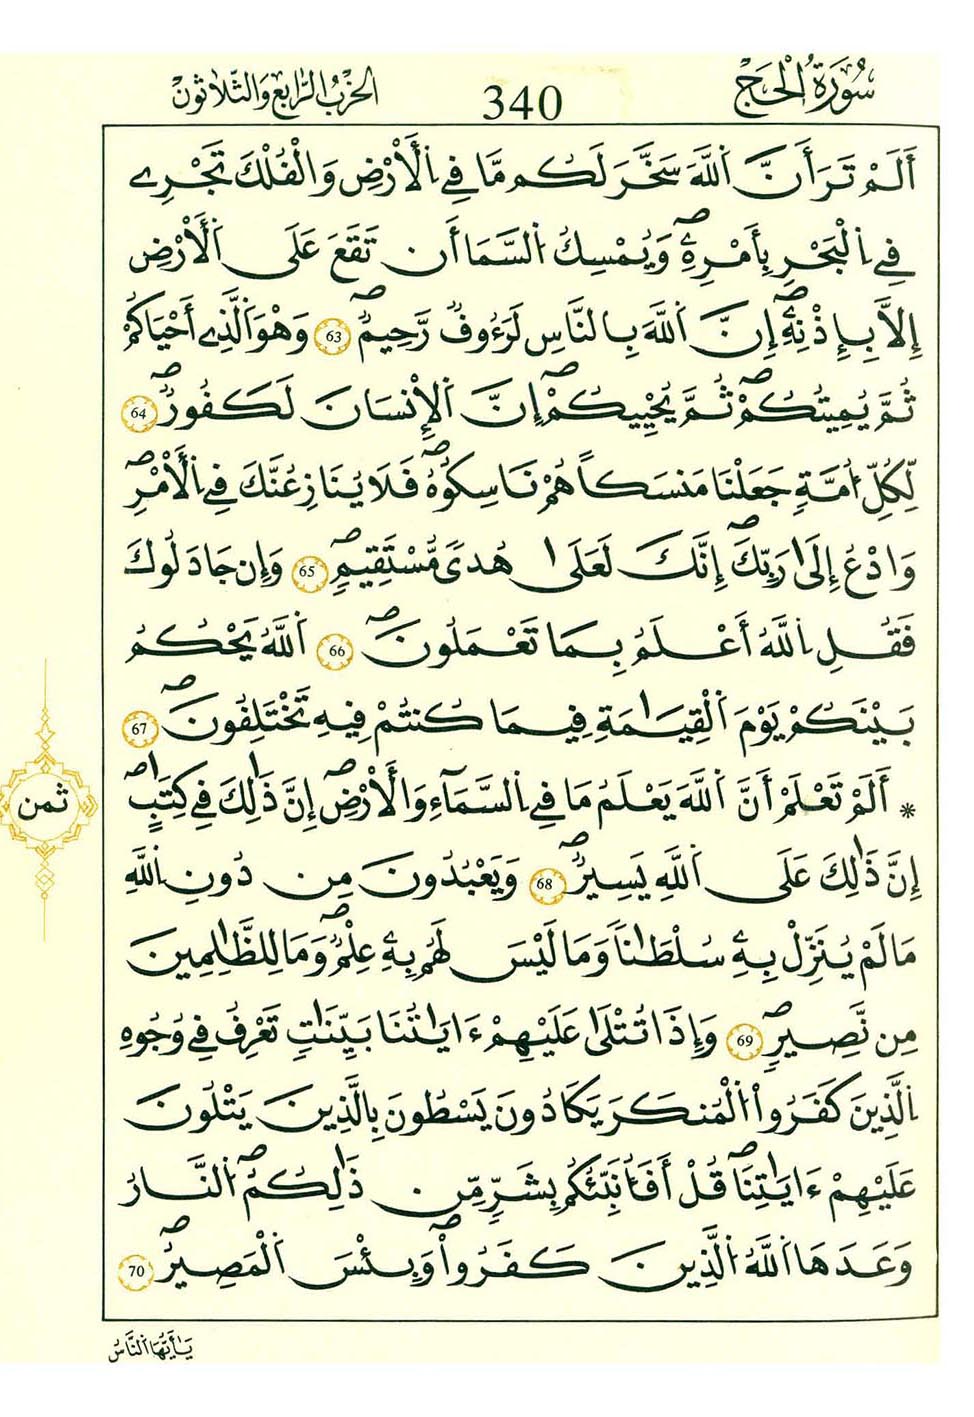 سُورَةُ الْحَجّ
340
الحِزْبُ الرَّابِعُ وَالثَّلَاثُونْ
أَلَمْ تَرَ أَنَّ اَللَّهَ سَخَّرَ لَكُم مَّا فِے اِلْأَرْضِ وَالْفُلْكَ تَجْرِے
فِے اِلْبَحْرِ بِأَمْرِهِۦۖ وَيُمْسِكُ اُلسَّمَا أَن تَقَعَ عَلَى اَلْأَرْضِ
إِلَّا بِإِذْنِهِۦۖ إِنَّ اَللَّهَ بِالنَّاسِ لَرَءُوفٌ رَّحِيمٌۖ 63 وَهْوَ اَلَّذِے أَحْيَاكُمْ
ثُمَّ يُمِيتُكُمْۖ ثُمَّ يُحْيِيكُمْۖ إِنَّ اَلْإِنسَانَ لَكَفُورٌۖ 64
لِّكُلِّ أُمَّةٍ جَعَلْنَا مَنسَكاً هُمْ نَاسِكُوهُۖ فَلَا يُنَازِعُنَّكَ فِے اِلْأَمْرِۖ
وَادْعُ إِلَىٰ رَبِّكَۖ إِنَّكَ لَعَلَىٰ هُدىً مُّسْتَقِيمٍۖ 65 وَإِن جَادَلُوكَ
فَقُلِ اِللَّهُ أَعْلَمُ بِمَا تَعْمَلُونَۖ 66 اَللَّهُ يَحْكُمُ
بَيْنَكُمْ يَوْمَ اَلْقِيَٰمَةِ فِيمَا كُنتُمْ فِيهِ تَخْتَلِفُونَۖ 67
* أَلَمْ تَعْلَمْ أَنَّ اَللَّهَ يَعْلَمُ مَا فِے اِلسَّمَآءِ وَالْأَرْضِۖ إِنَّ ذَٰلِكَ فِے كِتَٰبٍۖ
ثمن
إِنَّ ذَٰلِكَ عَلَى اَللَّهِ يَسِيرٌۖ 68 وَيَعْبُدُونَ مِن دُونِ اِللَّهِ
مَا لَمْ يُنَزِّلْ بِهِۦ سُلْطَٰناً وَمَا لَيْسَ لَهُم بِهِۦ عِلْمٌۖ وَمَا لِلظَّٰلِمِينَ
مِن نَّصِيرٍۖ 69 وَإِذَا تُتْلَىٰ عَلَيْهِمْ ءَايَٰتُنَا بَيِّنَٰتٍ تَعْرِفُ فِے وُجُوهِ
اِلَّذِينَ كَفَرُواْ اُلْمُنكَرَ يَكَادُونَ يَسْطُونَ بِالَّذِينَ يَتْلُونَ
عَلَيْهِمْ ءَايَٰتِنَاۖ قُلْ أَفَأُنَبِّئُكُم بِشَرٍّ مِّن ذَٰلِكُمُۖ اُلنَّارُ
وَعَدَهَا اَللَّهُ اُلَّذِينَ كَفَرُواْۖ وَبِئْسَ اَلْمَصِيرُۖ 70
يَٰأَيُّهَا اَلنَّاسُ